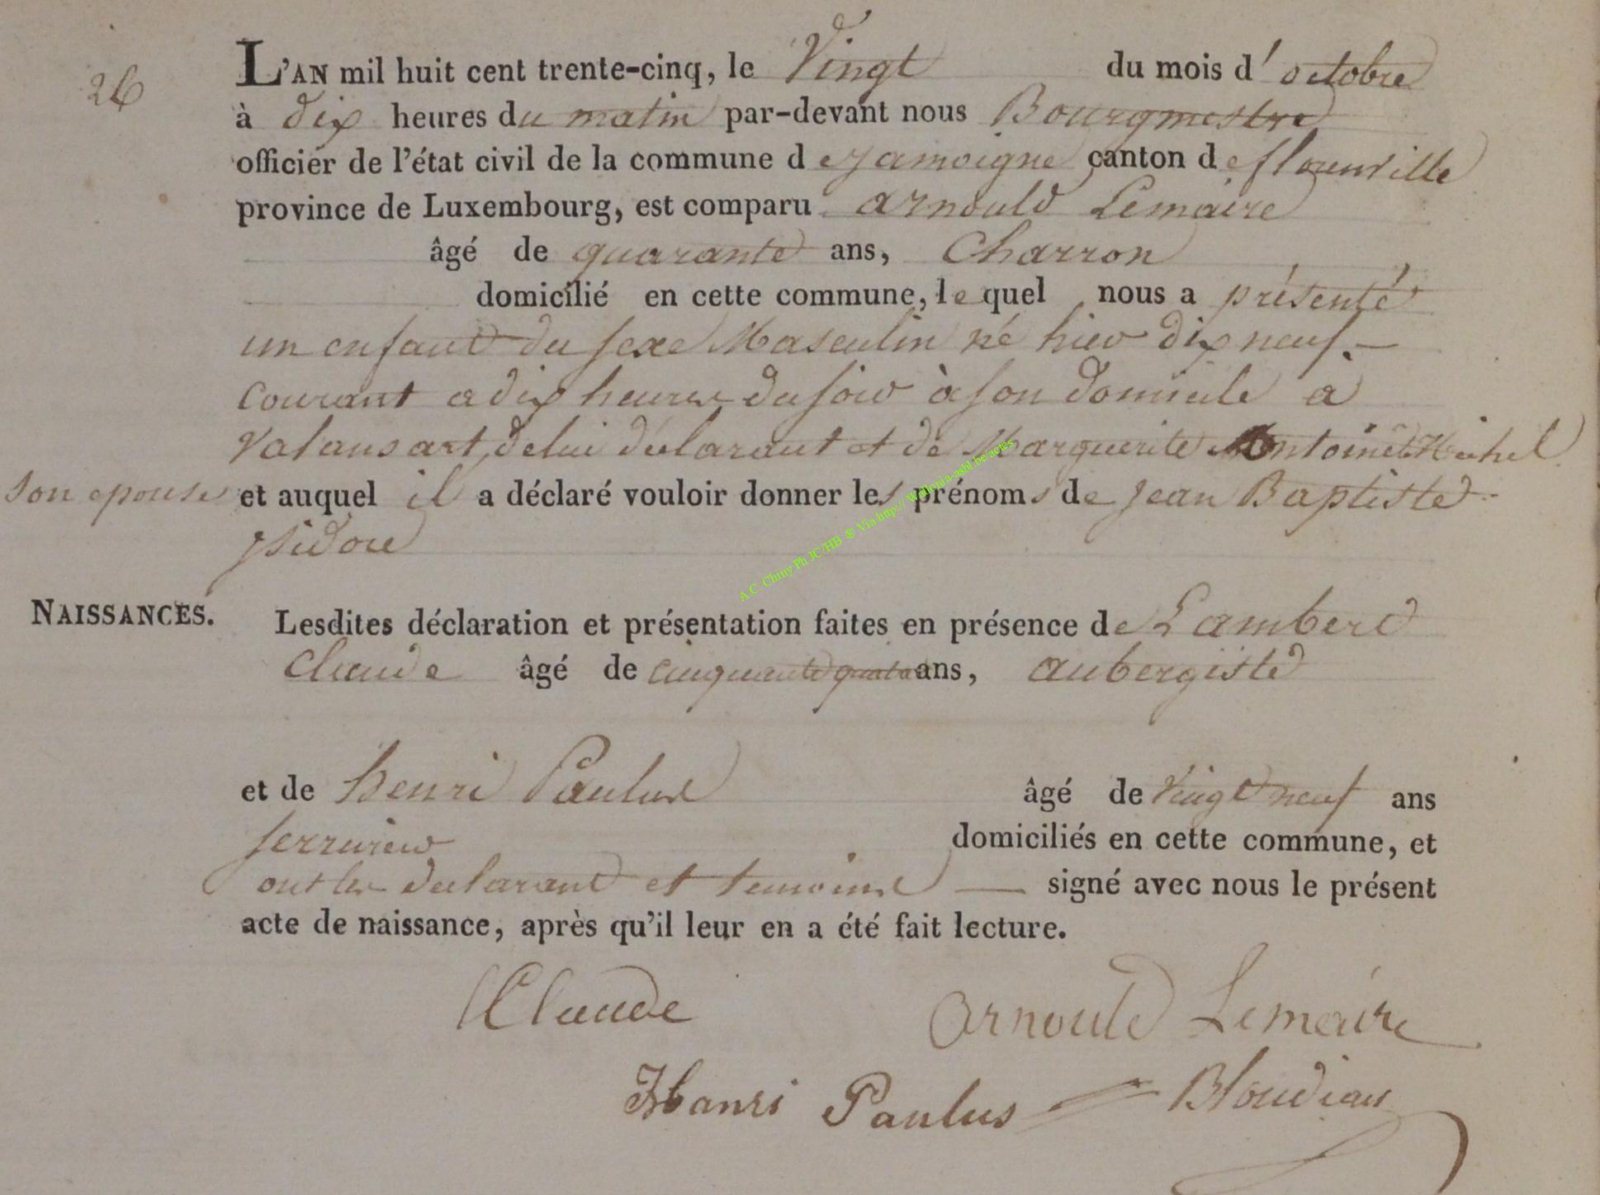 26
L'AN mil huit cent trente-cinq, le Vingt du mois d'octobre
à dix heures du matin par-devant nous Bourgmestre
officier de l'état civil de la commune de jamoigne canton de florenville
province de Luxembourg, est comparu arnould Lemaire
âgé de quarante ans, Charron
domicilié en cette commune, lequel nous a présenté
un enfant du sexe Masculin né hier dix neuf
Courant a dix heures du soir à son domicile a
Valansart, de lui déclarant et de Marguerite Antoinette Michel
son epouse et auquel il a déclaré vouloir donner les prénoms de jean Baptiste
isidore
NAISSANCES.
Lesdites déclaration et présentation faites en présence de Lambert
Claude âgé de cinquante quatre ans, aubergiste
et de henri Paulus âgé de Vingt neuf ans
serrurier domiciliés en cette commune, et
ont les declarant et temoins signé avec nous le présent
acte de naissance, après qu'il leur en a été fait lecture.
LClaude arnould Lemaire
Hanri Paulus Bloudiau
A.C. Chiny Ph JC/HB @ Via http://